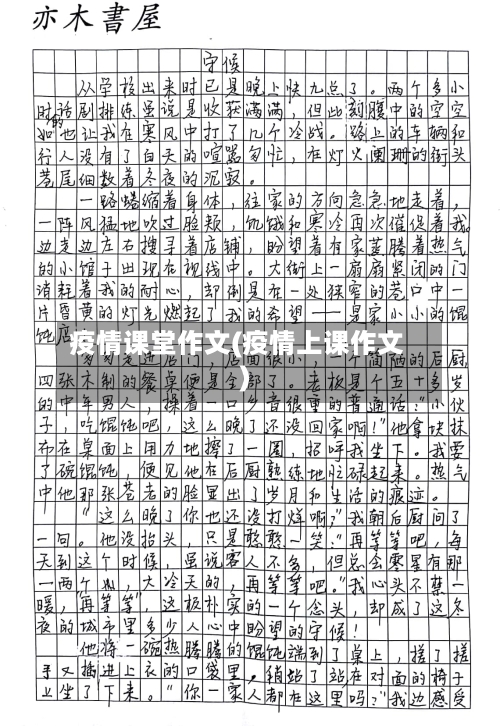 亦木書屋
守候
从学校出来时已是晚上快九点了。两个多小
时的话剧排练虽说是收获满满，但此刻腹中的空空
如也让我在寒风中打了几个冷战。路上的车辆和
行人没有了白天的喧嚣匆忙，在灯火阑珊的街头
巷尾细数着冬夜的沉寂。
一路蜷缩着身体，往家的方向急急地走着，
一阵风猛地吹过脸颊，饥饿和寒冷再次催促着我。
边走边左右搜寻着店铺，盼望着有家蒸腾着热气
的小馆子出现在视线中。大街上一扇扇紧闭的门
消耗着我的耐心，却倒是在一处狭窄的巷口中一
片昏黄的灯光燃起了我的希望——是家小小的馄
饨店
疫情课堂作文(疫情上课作文
)
匆匆走进店门，店面很小，一个简陋的后厨，
四张木制的餐桌便是全部了。老板是个五十多岁
的中年男人，操着一口乡音很重的普通话："小伙
子，吃馄饨吧，这么晚了还没回家啊！"他拿块抹
布在桌面上用力地擦了一圈，招呼我坐下。我要
了碗馄饨，便见他在后厨熟练地忙碌起来。热气
中他那张苍老的脸显出了岁月和生活的痕迹。
"这么晚了你也还没打烊啊？"我朝后厨问了
一句。他没抬头，只是憨憨一笑："再等等吧，每
天到这个时候，虽说客人不多，但总会零星有那
一两个，大冷天的，再等等吧。"我心头不禁一
暖，"再等等"，这极朴实的一个念头，却成了这冬
夜的城市里多少人心中盼望的守候！
他将一碗热腾腾的馄饨端到了桌上，搓了搓
手又插进上衣的口袋里，稍站了站在对面的椅子
上坐了下来。"你一家人都在这里吗？"我边感受